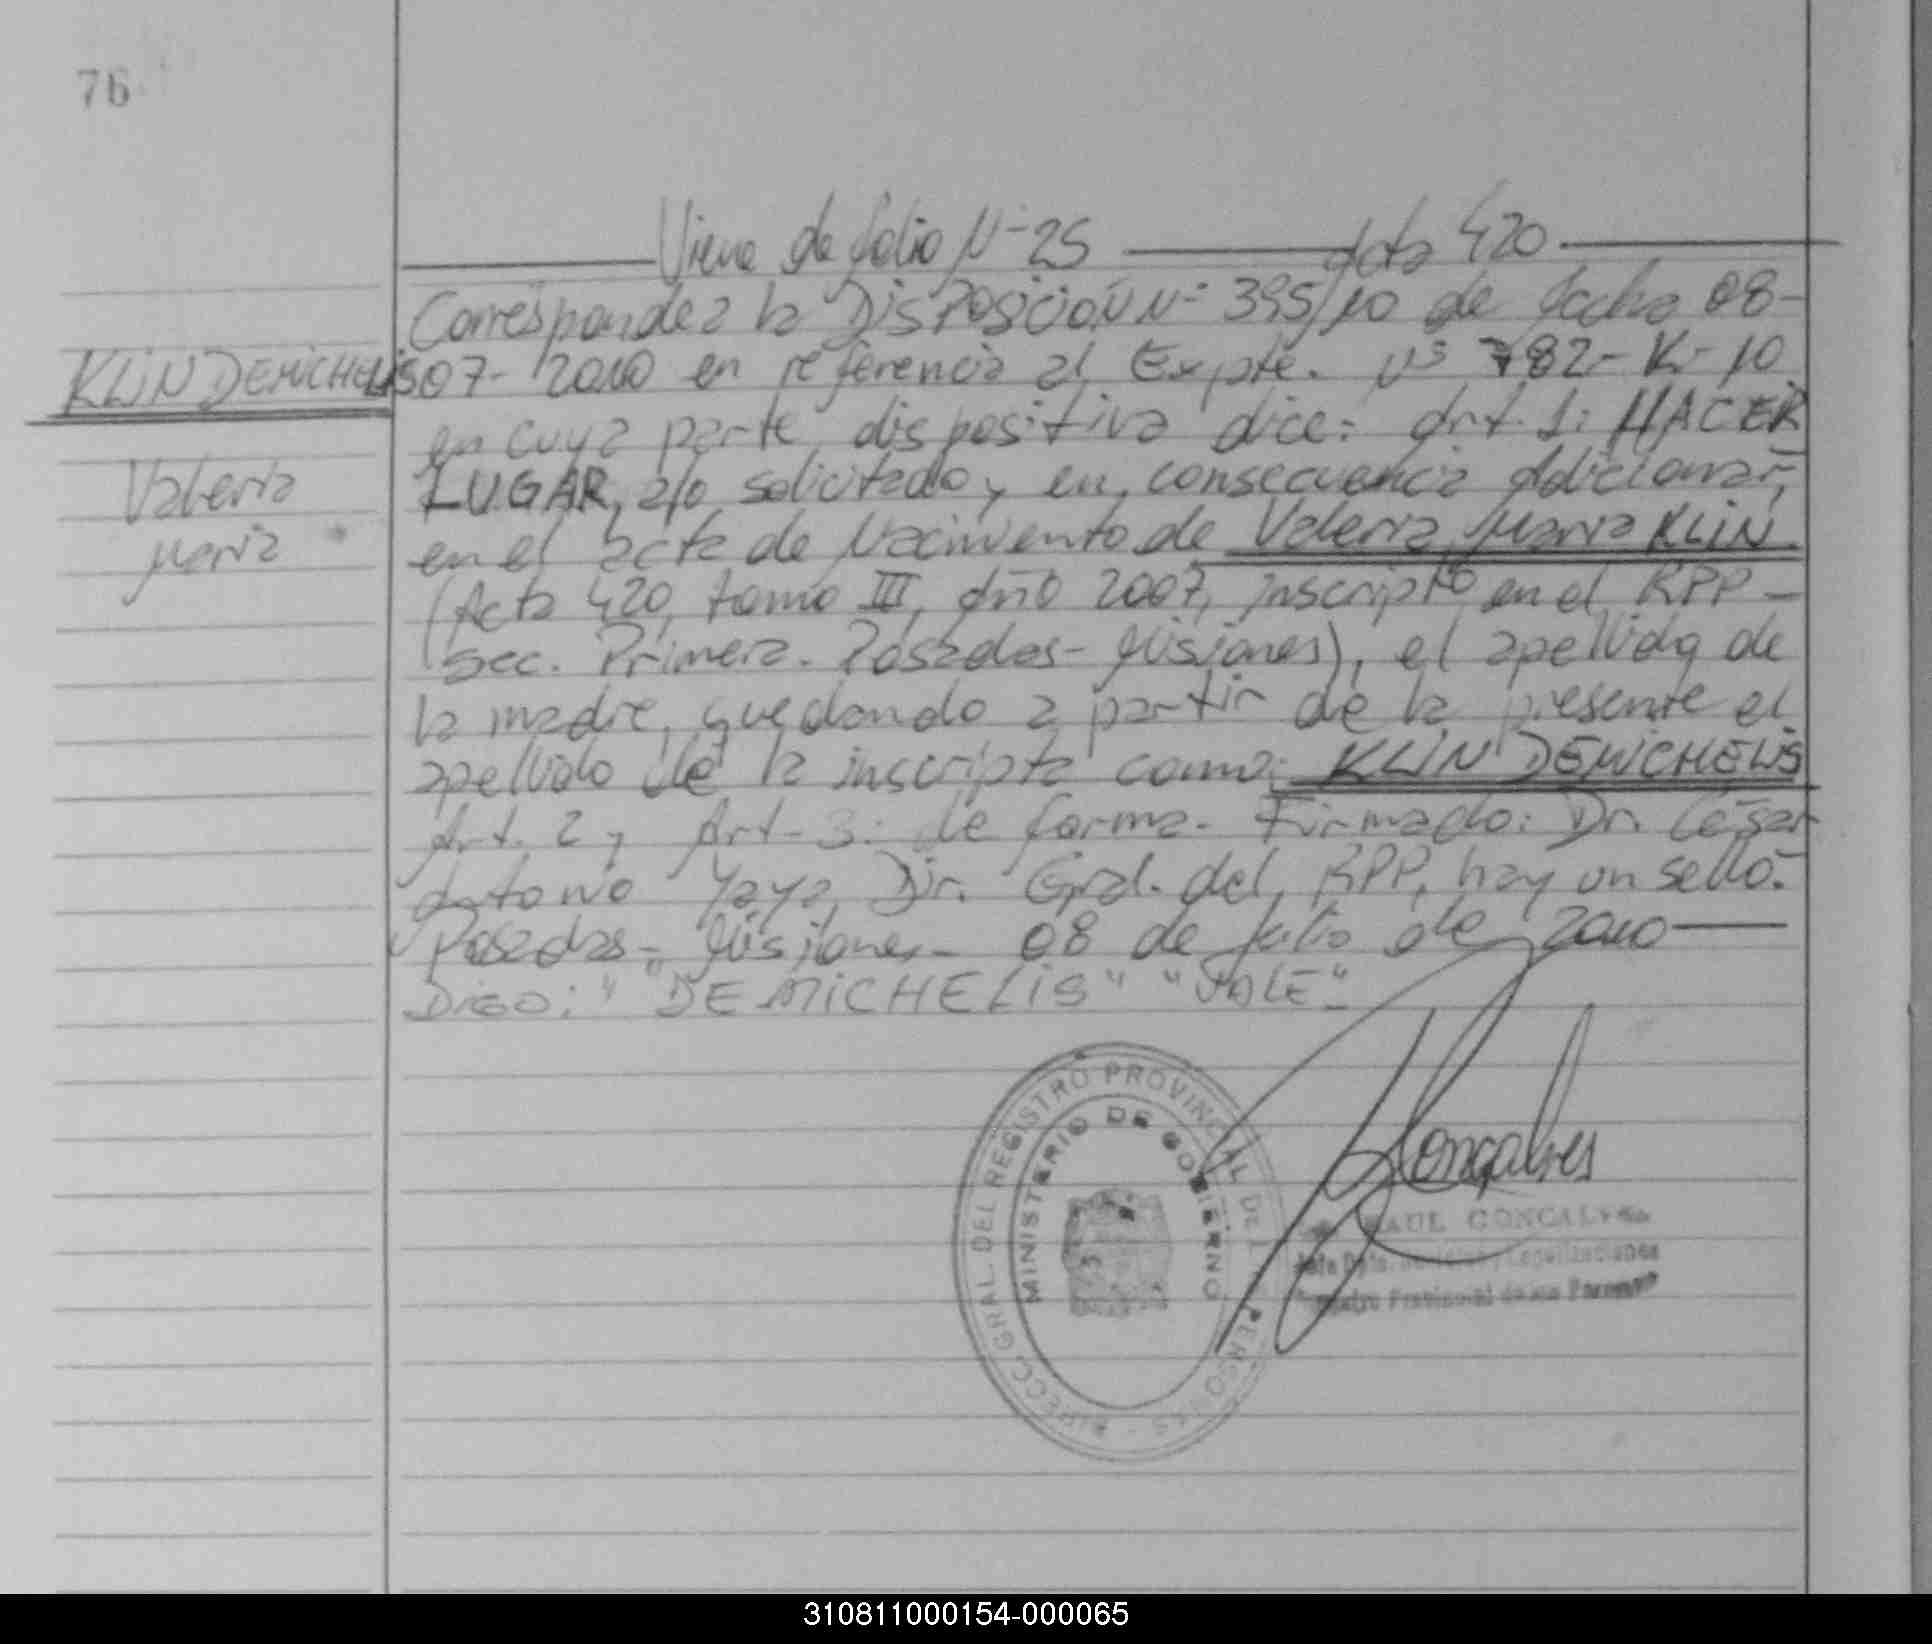 76
Viene de folio N- 25 Acta 420
Corresponde a la DISPOSICIÓN N- 395/10 de fecha 08-
KLIN DEMICHELIS
07- 2010 en referencia al Expte. Nº 782- K- 10
en cuya parte dispositiva dice: Art. 1: HACER
Valeria
LUGAR, a lo solicitado y en consecuencia Adicionar,
Maria
en el acta de Nacimiento de Valeria Maria KLIN
(Acta 420, tomo III, Año 2007, inscripto en el RPP -
sec. Primera. Posadas- Misiones), el apellido de
la madre, quedando a partir de la presente el
apellido de la inscripta como: KLIN DEMICHELIS
Art. 2 y Art- 3: de forma- Firmado: Dr. César
Antonio Yaya Dir. Gral. del RPP, hay un sello.-
Posadas- Misiones- 08 de Julio de 2010
Digo: " "DEMICHELIS" "VALE"-
DIRECC. GRAL. DEL REGISTRO PROVINCIAL DE LAS PERSONAS -
MINISTERIO DE GOBIERNO
Gonçalves
RAUL GONCALVES
Jefe Dpto. y Legalizaciones
Registro Provincial de las Personas
310811000154-000065